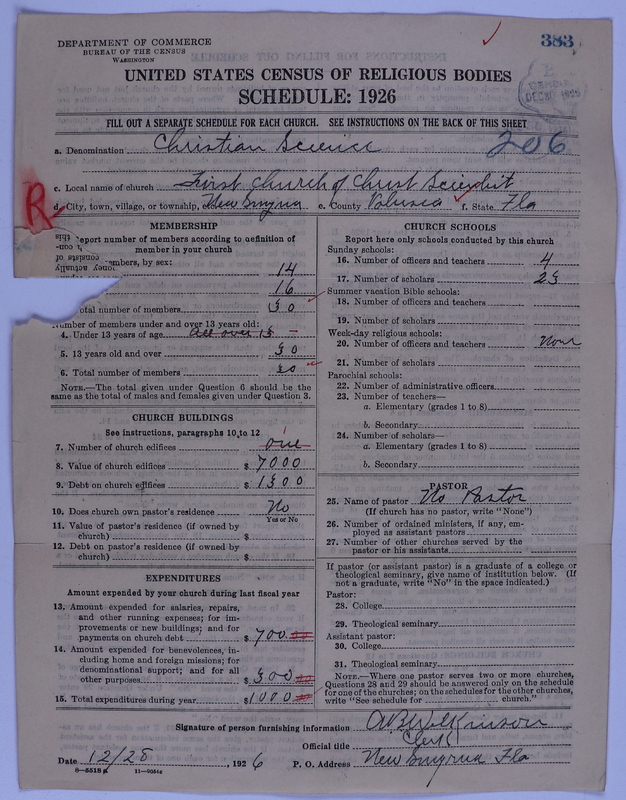 383
DEPARTMENT OF COMMERCE
BUREAU OF THE CENSUS
WASHINGTON
UNITED STATES CENSUS OF RELIGIOUS BODIES
SCHEDULE: 1926
FILL OUT A SEPARATE SCHEDULE FOR EACH CHURCH. SEE INSTRUCTIONS ON THE BACK OF THIS SHEET
a. Denomination Christian Science 206
c. Local name of church First Church of Christ Scientist
R
d. City, town, village, or township, New Smyrna e. County Volusia f. State Fla
MEMBERSHIP
Report number of members according to definition of
member in your church
members, by sex:
14
16
total number of members 30
Number of members under and over 13 years old:
4. Under 13 years of age all over 13 –
5. 13 years old and over 30
6. Total number of members 30
NOTE.—The total given under Question 6 should be the
same as the total of males and females given under Question 3.
CHURCH BUILDINGS
See instructions, paragraphs 10 to 12
7. Number of church edifices one
8. Value of church edifices $ 7000
9. Debt on church edifices $ 1300
10. Does church own pastor's residence No
Yes or No
11. Value of pastor's residence (if owned by
church) $
12. Debt on pastor's residence (if owned by
church) $
EXPENDITURES
Amount expended by your church during last fiscal year
13. Amount expended for salaries, repairs,
and other running expenses; for im-
provements or new buildings; and for
payments on church debt $ 700
14. Amount expended for benevolences, in-
cluding home and foreign missions; for
denominational support; and for all
other purposes $ 300
15. Total expenditures during year $ 1000
CHURCH SCHOOLS
Report here only schools conducted by this church
Sunday schools:
16. Number of officers and teachers 4
17. Number of scholars 23
Summer vacation Bible schools:
18. Number of officers and teachers
19. Number of scholars
Week-day religious schools:
20. Number of officers and teachers None
21. Number of scholars
Parochial schools:
22. Number of administrative officers
23. Number of teachers—
a. Elementary (grades 1 to 8)
b. Secondary
24. Number of scholars—
a. Elementary (grades 1 to 8)
b. Secondary
PASTOR
25. Name of pastor No Pastor
(If church has no pastor, write "None")
26. Number of ordained ministers, if any, em-
ployed as assistant pastors
27. Number of other churches served by the
pastor or his assistants
If pastor (or assistant pastor) is a graduate of a college or
theological seminary, give name of institution below. (If
not a graduate, write "No" in the space indicated.)
Pastor:
28. College
29. Theological seminary
Assistant pastor:
30. College
31. Theological seminary
NOTE.—Where one pastor serves two or more churches,
Questions 28 and 29 should be answered only on the schedule
for one of the churches; on the schedules for the other churches,
write "See schedule for church."
Signature of person furnishing information Wilkinson
Official title Clerk
Date 12/28, 1926 P. O. Address New Smyrna Fla
8—5518a 11—9054a